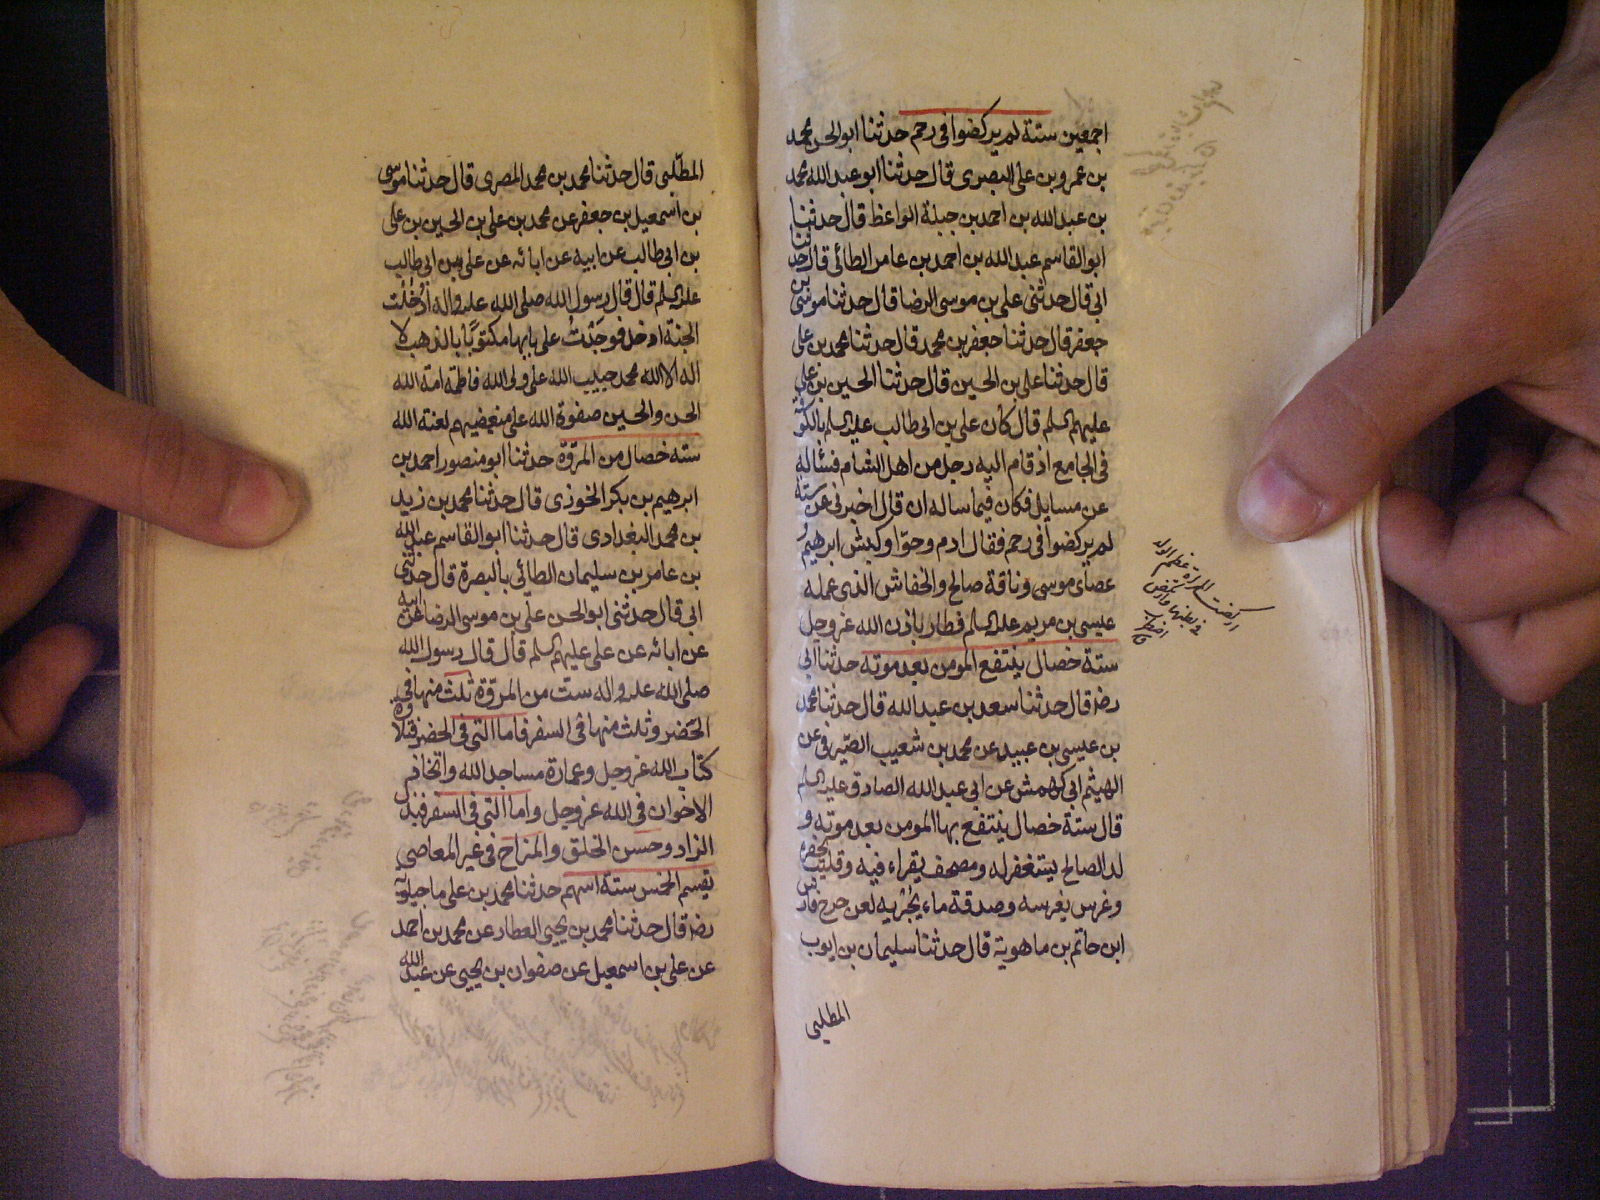 اجمعين ستة لم يركضوا فى رحم حدثنا ابو الحسن محمد
بن عمرو بن على البصرى قال حدثنا ابو عبد الله محمد
بن عبد الله بن احمد بن جبلة الواعظ قال حدثنا
ابو القاسم عبد الله بن احمد بن عامر الطائى قال حدثنا
ابى قال حدثنى على بن موسى الرضا قال حدثنا موسى بن
جعفر قال حدثنا جعفر بن محمد قال حدثنا محمد بن على
قال حدثنا على بن الحسين قال حدثنا الحسين بن على
عليهم السلم قال كان على بن ابى طالب عليه السلم بالكوفة
فى الجامع اذ قام اليه رجل من اهل الشام فسئاله
عن مسايل فكان فيما ساله ان قال اخبرنى عن ستة
لم يركضوا فى رحم فقال ادم وحوا وكبش ابرهيم و
عصاى موسى وناقة صالح والخفاش الذى عمله
عيسى بن مريم عليه السلم فطار باذن الله عز وجل
ستة خصال ينتفع المومن بعد موته حدثنا ابى
رضه قال حدثنا سعد بن عبد الله قال حدثنا محمد
بن عيسى بن عبيد عن محمد بن شعيب الصيرفى عن
الهيثم ابى كهمش عن ابى عبد الله الصادق عليه السلم
قال ستة خصال ينتفع بها المومن بعد موته و
لد الصالح يستغفر له ومصحف يقراء فيه وقليب يحفره
وغرس يغرسه وصدقة ماء يجريه
ابن حاتم بن ماهوية قال حدثنا سليمان بن ايوب
المطلبى
اركضت المراة عظم الولد
فى بطنها
المطلبى قال حدثنا محمد بن محمد المصرى قال حدثنا موسى
بن اسمعيل بن جعفر عن محمد بن على بن الحسين بن على
بن ابى طالب عن ابيه عن ابائه عن على بن ابى طالب
عليه السلم قال قال رسول الله صلى الله عليه واله أدْخُلْت
الجنة ادخل فوجَدْتُ على بابها مكتوبًا بالذهب لا
اله الا الله محمد حبيب الله على ولى الله فاطمة امة الله
الحسن والحسين صفوة الله على مبغضيهم لعنة الله
سته خصال من المروّة حدثنا ابو منصور احمد بن
ابرهيم بن بكر الخوزى قال حدثنا محمد بن زيد
بن محمد البغدادى قال حدثنا ابو القاسم عبد الله
بن عامر بن سليمان الطائي بالبصرة قال حدثنى
ابى قال حدثنى ابو الحسن على بن موسى الرضا عن ابيه
عن ابائه عن على عليهم السلم قال قال رسول الله
صلى الله عليه واله ست من المروّة ثلث منها فى
الحضر وثلث منها فى السفر فاما التى فى الحضر فتلاوة
كتاب الله عز وجل وعمارة مساجد الله واتخاذ
الاخوان فى الله عز وجل واما التى فى السفر فبذل
الزاد وحسن الخلق والمزاح فى غير المعاصى
يقسم الخمس ستة اسهم حدثنا محمد بن على ماجيلويه
رضه قال حدثنا محمد بن يحيى العطار عن محمد بن احمد
عن على بن اسمعيل عن صفوان بن يحيى عن عبد الله